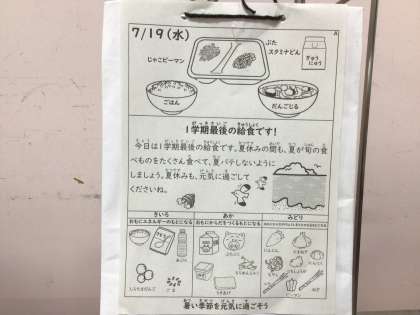 7/19(水)
ぶた
スタミナどん
じゃこピーマン
ぎゅう
にゅう
ごはん
だんごじる
1学期最後の給食です!
今日は1学期最後の給食です。夏休みの間も、夏が旬の食
べものをたくさん食べて、夏バテしないように
しましょう。夏休みも、元気に過ごして
くださいね。
きいろ
あか
みどり
おもにエネルギーのもとになる
おもにからだをつくるもとになる
ピーマン
暑い季節を元気に過ごそう